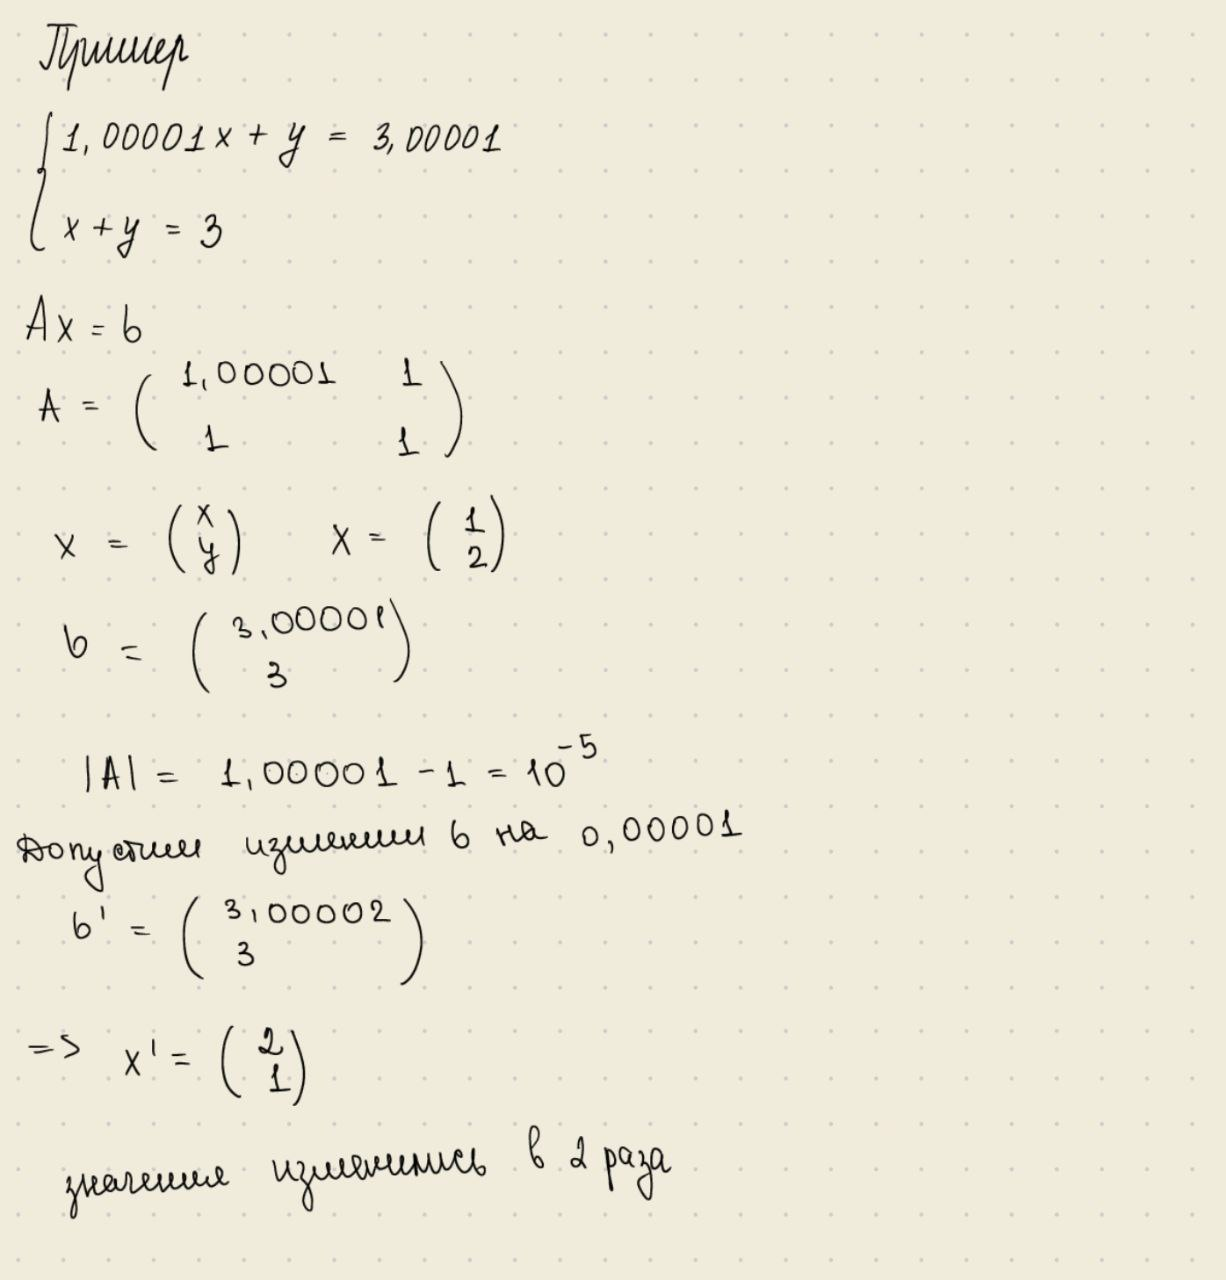 Пример
1,00001x + y = 3,00001
x + y = 3
Ax = b
A = ( 1,00001 1
1 1 )
x = ( x y ) x = ( 1 2 )
b = ( 3,00001
3 )
|A| = 1,00001 - 1 = 10^-5
Допустим изменим b на 0,00001
b' = ( 3,00002
3 )
=> x' = ( 2
1 )
значения изменились в 2 раза